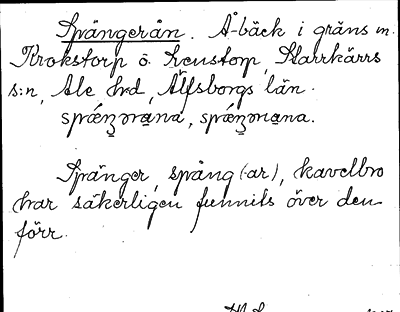 Spängerån. Å-bäck i gräns m.
Krokstorp o. Livstorp, Starrkärrs
s:n, Ale hrd, Älfsborgs län.
Spänger, spång (-ar), kavelbro
har säkerligen funnits över den
förr.